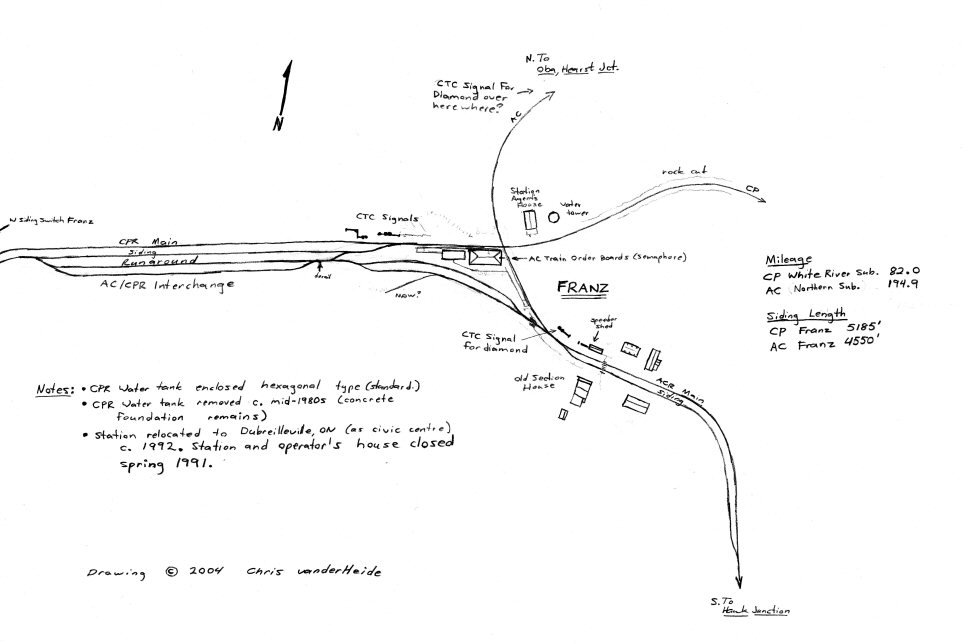 N. To
Oba, Hearst Jct.
CTC Signal For
Diamond over
here where?
AC
N
rock cut
CP
Station
Agents
House
Water
tower
N Siding Switch Franz
CTC Signals
CPR Main
Siding
Runaround
derail
AC/CPR Interchange
AC Train Order Boards (Semaphore)
FRANZ
Mileage
CP White River Sub. 82.0
AC Northern Sub. 194.9
Siding Length
CP Franz 5185'
AC Franz 4550'
NOW?
CTC Signal
for diamond
Speeder
Shed
Old Section
House
ACR Main
Siding
Notes: • CPR Water tank enclosed hexagonal type (standard.)
• CPR Water tank removed c. mid-1980s (concrete
foundation remains)
• Station relocated to Dubreilleville, ON (as civic centre)
c. 1992. Station and operator's house closed
spring 1991.
Drawing © 2004 Chris vanderHeide
S. To
Hawk Junction